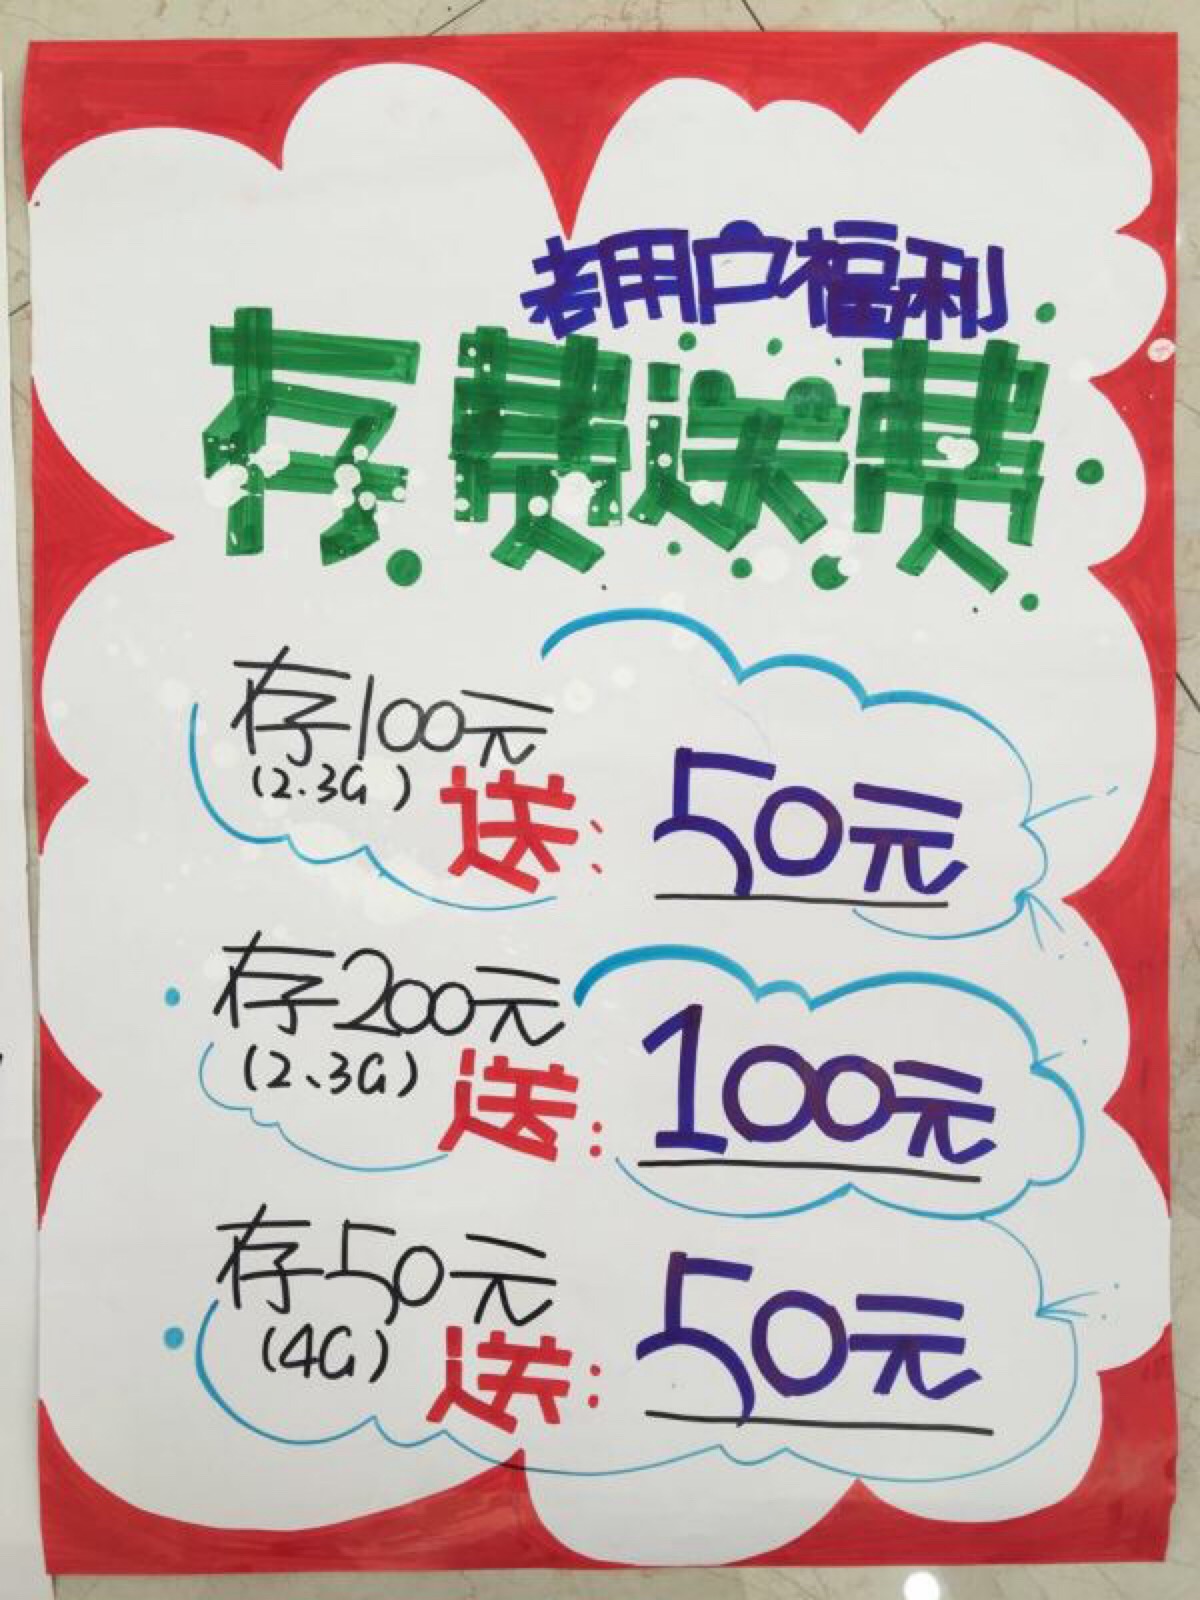 老用户福利
存费送费
存100元
(2.3G)
送: 50元
存200元
(2、3G)
送: 100元
存50元
(4G)
送: 50元